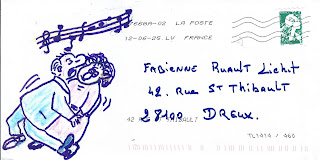 66BA-02 LA POSTE
12-06-25.LV FRANCE
FABIENNE RUAULT Lichit
42. RUE ST THIBAULT
28100 DREUX.
42 R THIBAULT
TL1414 / 460